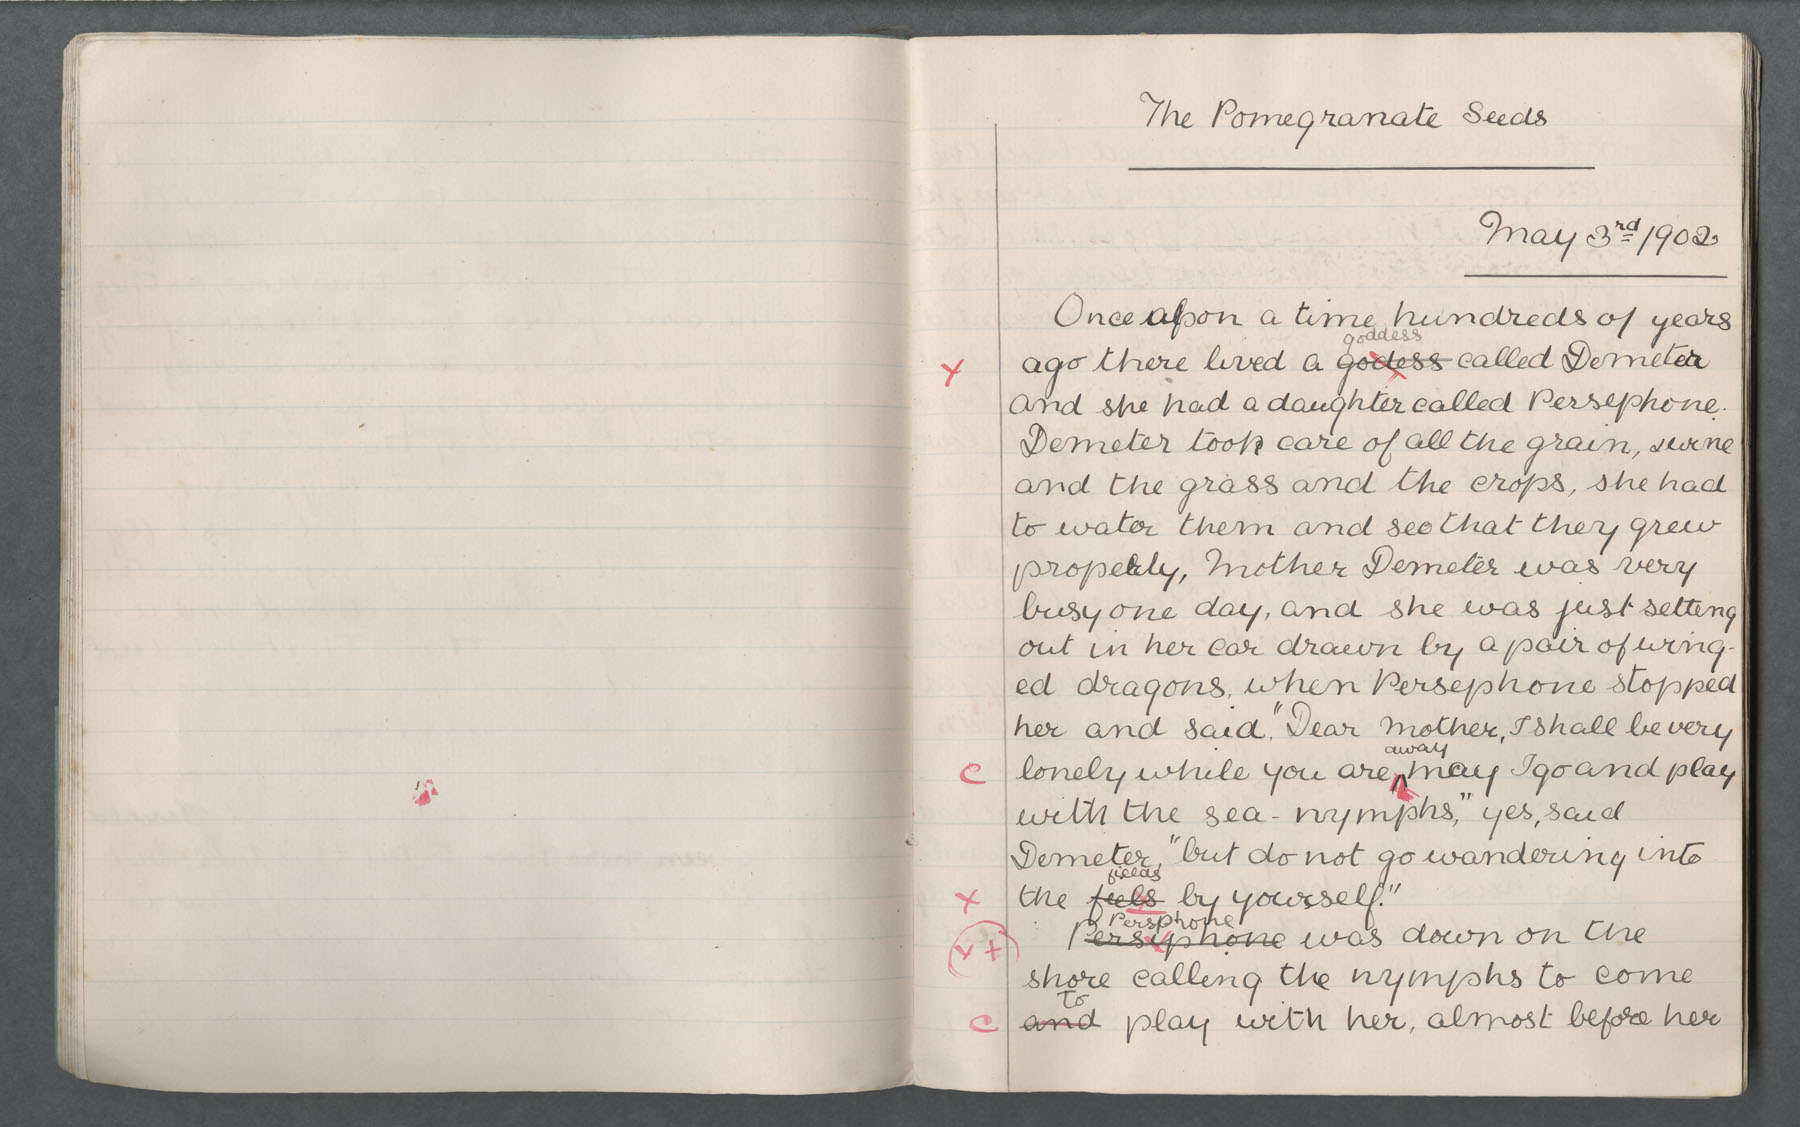 The Pomegranate Seeds
May 3rd 1902
Once upon a time hundreds of years
goddess
x ago there lived a godess called Demeter
and she had a daughter called Persephone.
Demeter took care of all the grain,
and the grass and the crops, she had
to water them and see that they grew
properly, Mother Demeter was very
busy one day, and she was just setting
out in her car drawn by a pair of wing-
ed dragons, when Persephone stopped
her and said, "Dear Mother, I shall be very
away
c lonely while you are, ^ may I go and play
with the sea-nymphs," yes, said
Demeter, "but do not go wandering into
fields
x the fiels by yourself."
Persphone
x + Persiphone was down on the
shore calling the nymphs to come
to
c and play with her, almost before her